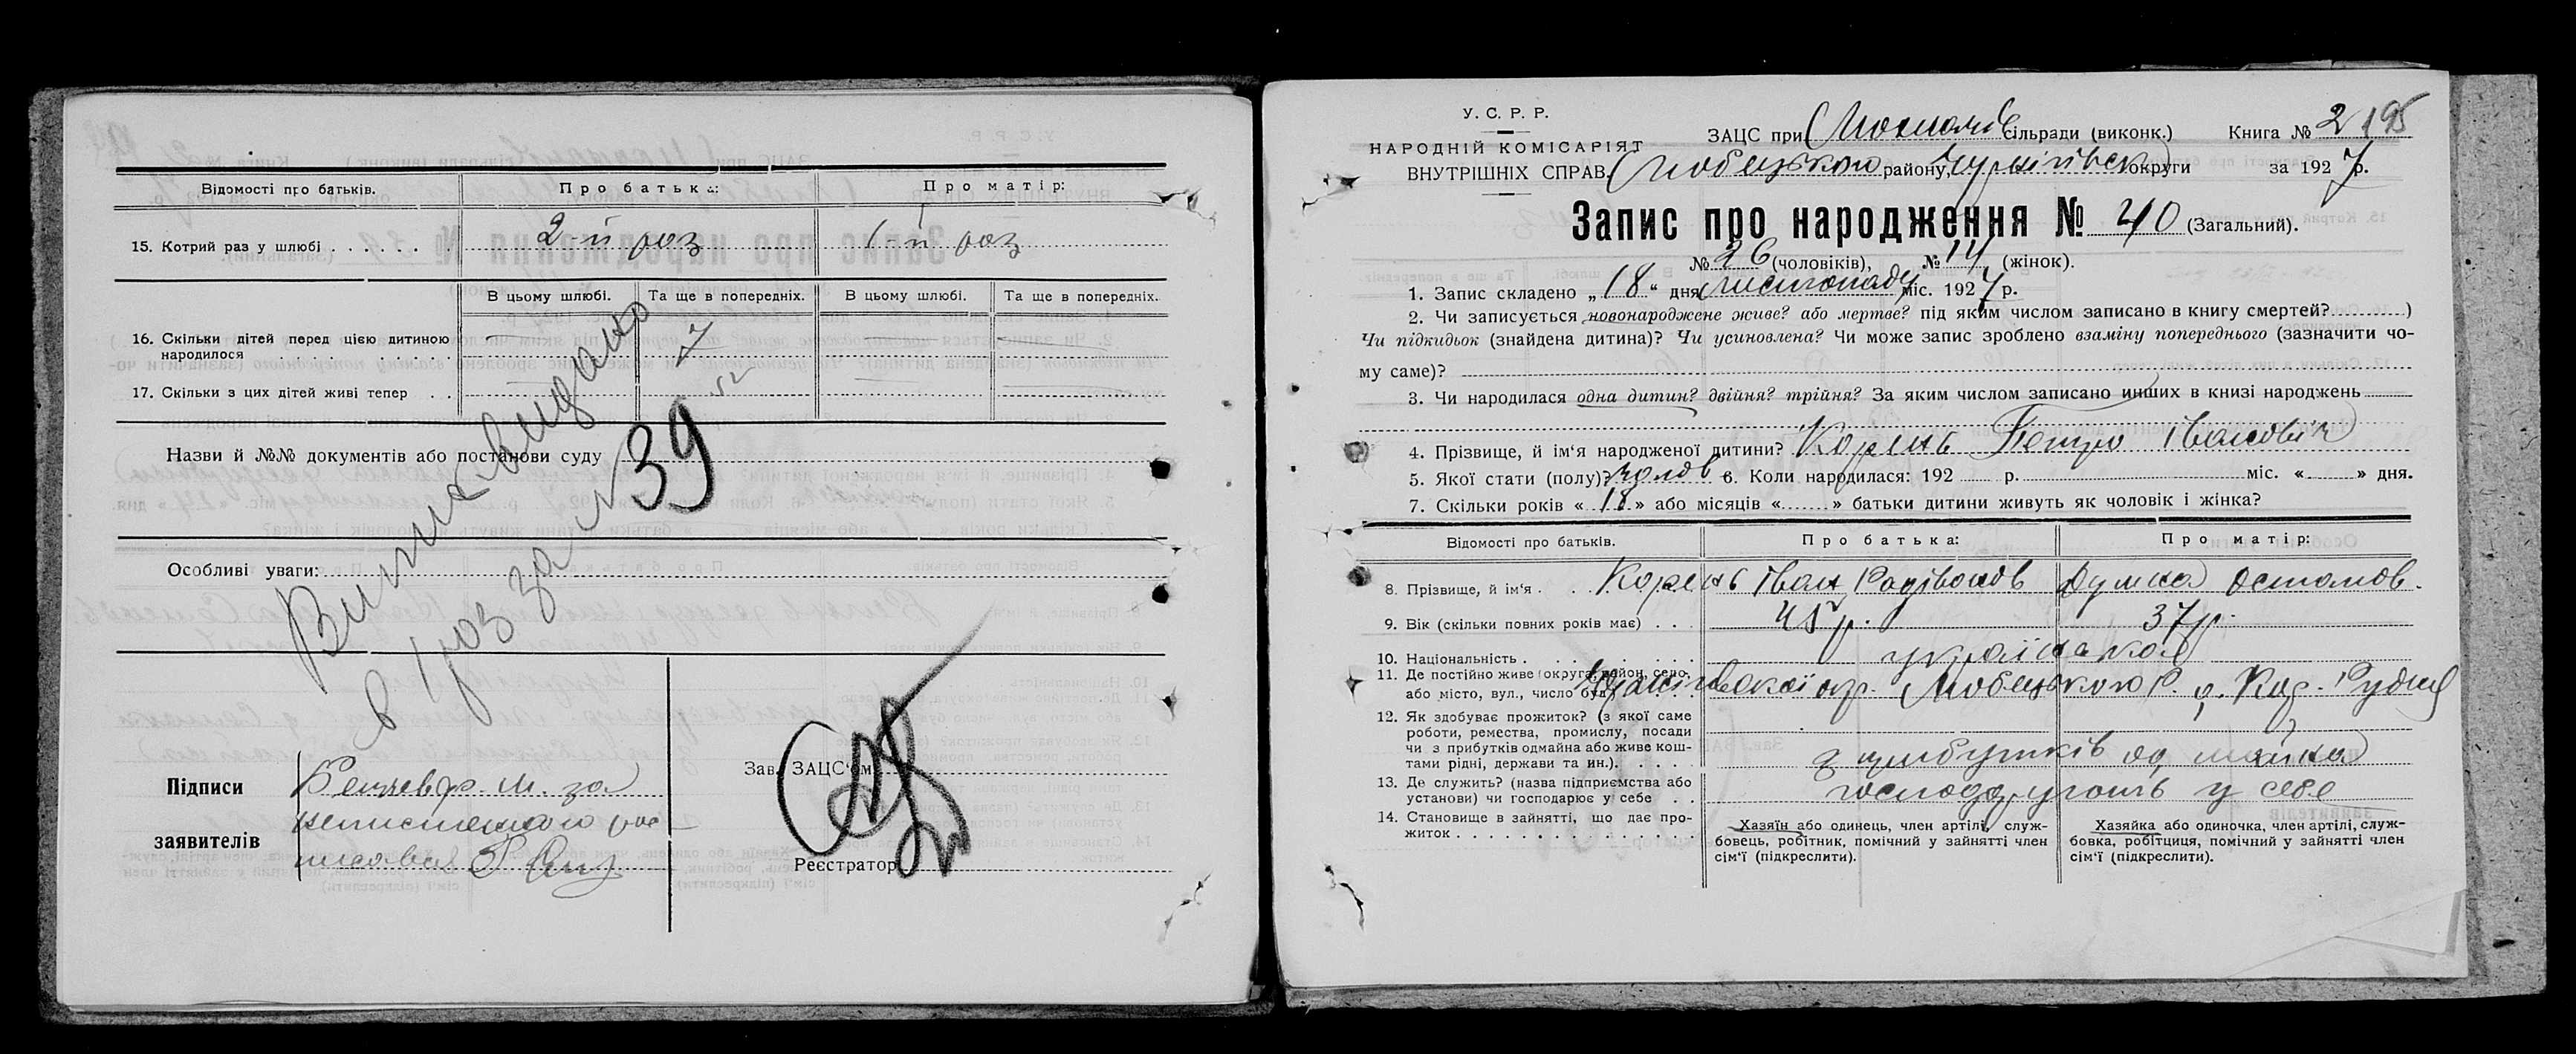 Відомості про батьків. Про батька: Про матір:
15. Котрий раз у шлюбі . . . . . . 2-й раз 1-й раз
В цьому шлюбі. Та ще в попередніх. В цьому шлюбі. Та ще в попередніх.
16. Скільки дітей перед цією дитиною
народилося . . . . . . . . .
17. Скільки з цих дітей живі тепер . .
Назви й №№ документів або постанови суду
Особливі уваги:
Виписк. видано
в 1 раз за № 39
Підписи
заявителів
за
неписменного рос
писався
Зав. ЗАЦС'ом
Реєстратор
У. С. Р. Р.
НАРОДНІЙ КОМІСАРІЯТ
ВНУТРІШНІХ СПРАВ.
ЗАЦС при сільради (виконк.) Книга № 2 195
Любецького району, Чернігівськ округи за 1927 р.
Запис про народження № 40 (Загальний).
№ 26 (чоловіків), № 14 (жінок).
1. Запис складено „18" дня листопаду міс. 1927 р.
2. Чи записується новонароджене живе? або мертве? під яким числом записано в книгу смертей? )
Чи підкидьок (знайдена дитина)? Чи усиновлена? Чи може запис зроблено взаміну попереднього (зазначити чо-
му саме)?
3. Чи народилася одна дитин? двійня? трійня? За яким числом записано инших в книзі народжень
4. Прізвище, й ім'я народженої дитини? Корень Петро Іванович
5. Якої стати (полу)? чолов 6. Коли народилася: 192 р. міс. « » дня.
7. Скільки років «18» або місяців « » батьки дитини живуть як чоловік і жінка?
Відомості про батьків. Про батька: Про матір:
8. Прізвище, й ім'я . . . Корень Іван Радівонов Думна Остапов.
9. Вік (скільки повних років має) . . . 45 р. 37 р.
10. Національність . . . . . . . українська
11. Де постійно живе (округа, район, село,
або місто, вул., число буд.) Чернігівської окр. Любецького Р. с. Кор. Рудня
12. Як здобуває прожиток? (з якої саме
роботи, ремества, промислу, посади
чи з прибутків одмайна або живе кош-
тами рідні, держави та ин.). . . . . з прибутків од майна
13. Де служить? (назва підприємства або
установи) чи господарює у себе . . господарують у себе
14. Становище в зайнятті, що дає про-
житок . . . . . . . . . . . . . .
Хазяїн або одинець, член артілі, служ-
бовець, робітник, помічний у зайнятті член
сім'ї (підкреслити).
Хазяйка або одиночка, член артілі, служ-
бовка, робітциця, помічний у зайнятті член
сім'ї (підкреслити).